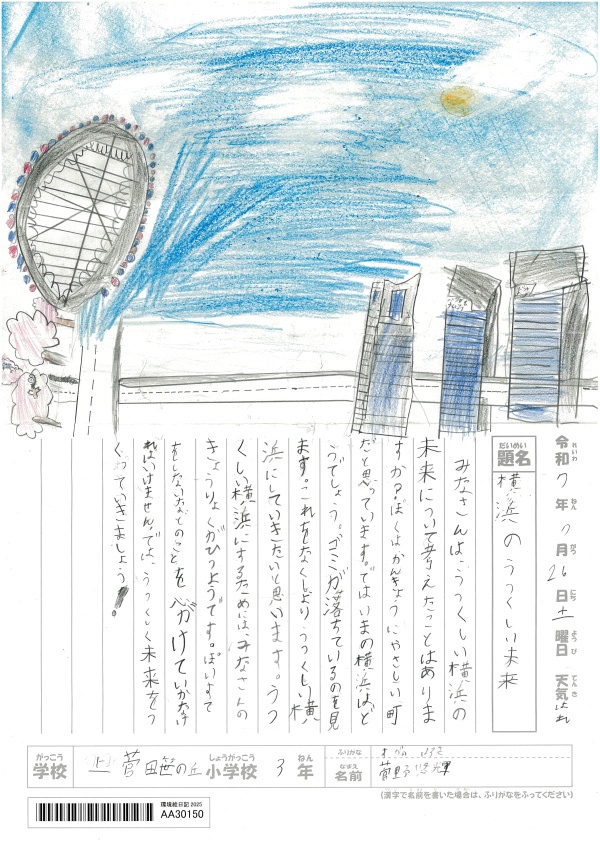 令和 7年 7月 26日 土曜日 天気 はれ
れいわ ねん がつ にち ようび てんき
だいめい
題名 横浜のうつくしい未来
みなさんは、うつくしい横浜の
未来について考えたことはありま
すか？ぼくはかんきょうにやさしい町
だと思っています。ではいまの横浜はど
うでしょう。ゴミが落ちているのを見
ます。これをなくしよりうつくしい横
浜にしていきたいと思います。うつ
くしい横浜にするためには、みなさんの
きょうりょくがひつようです。ぽいすて
をしないなどのことを心がけていかなけ
ればいけません。では、うつくしく未来をつ
くっていきましょう!
がっこう
学校 菅田笹の丘
しょうがっこう
小学校 3
ねん
年
ふりがな
なまえ
名前 菅野悠輝
(漢字で名前を書いた場合は、ふりがなをふってください)
環境絵日記 2025
AA30150